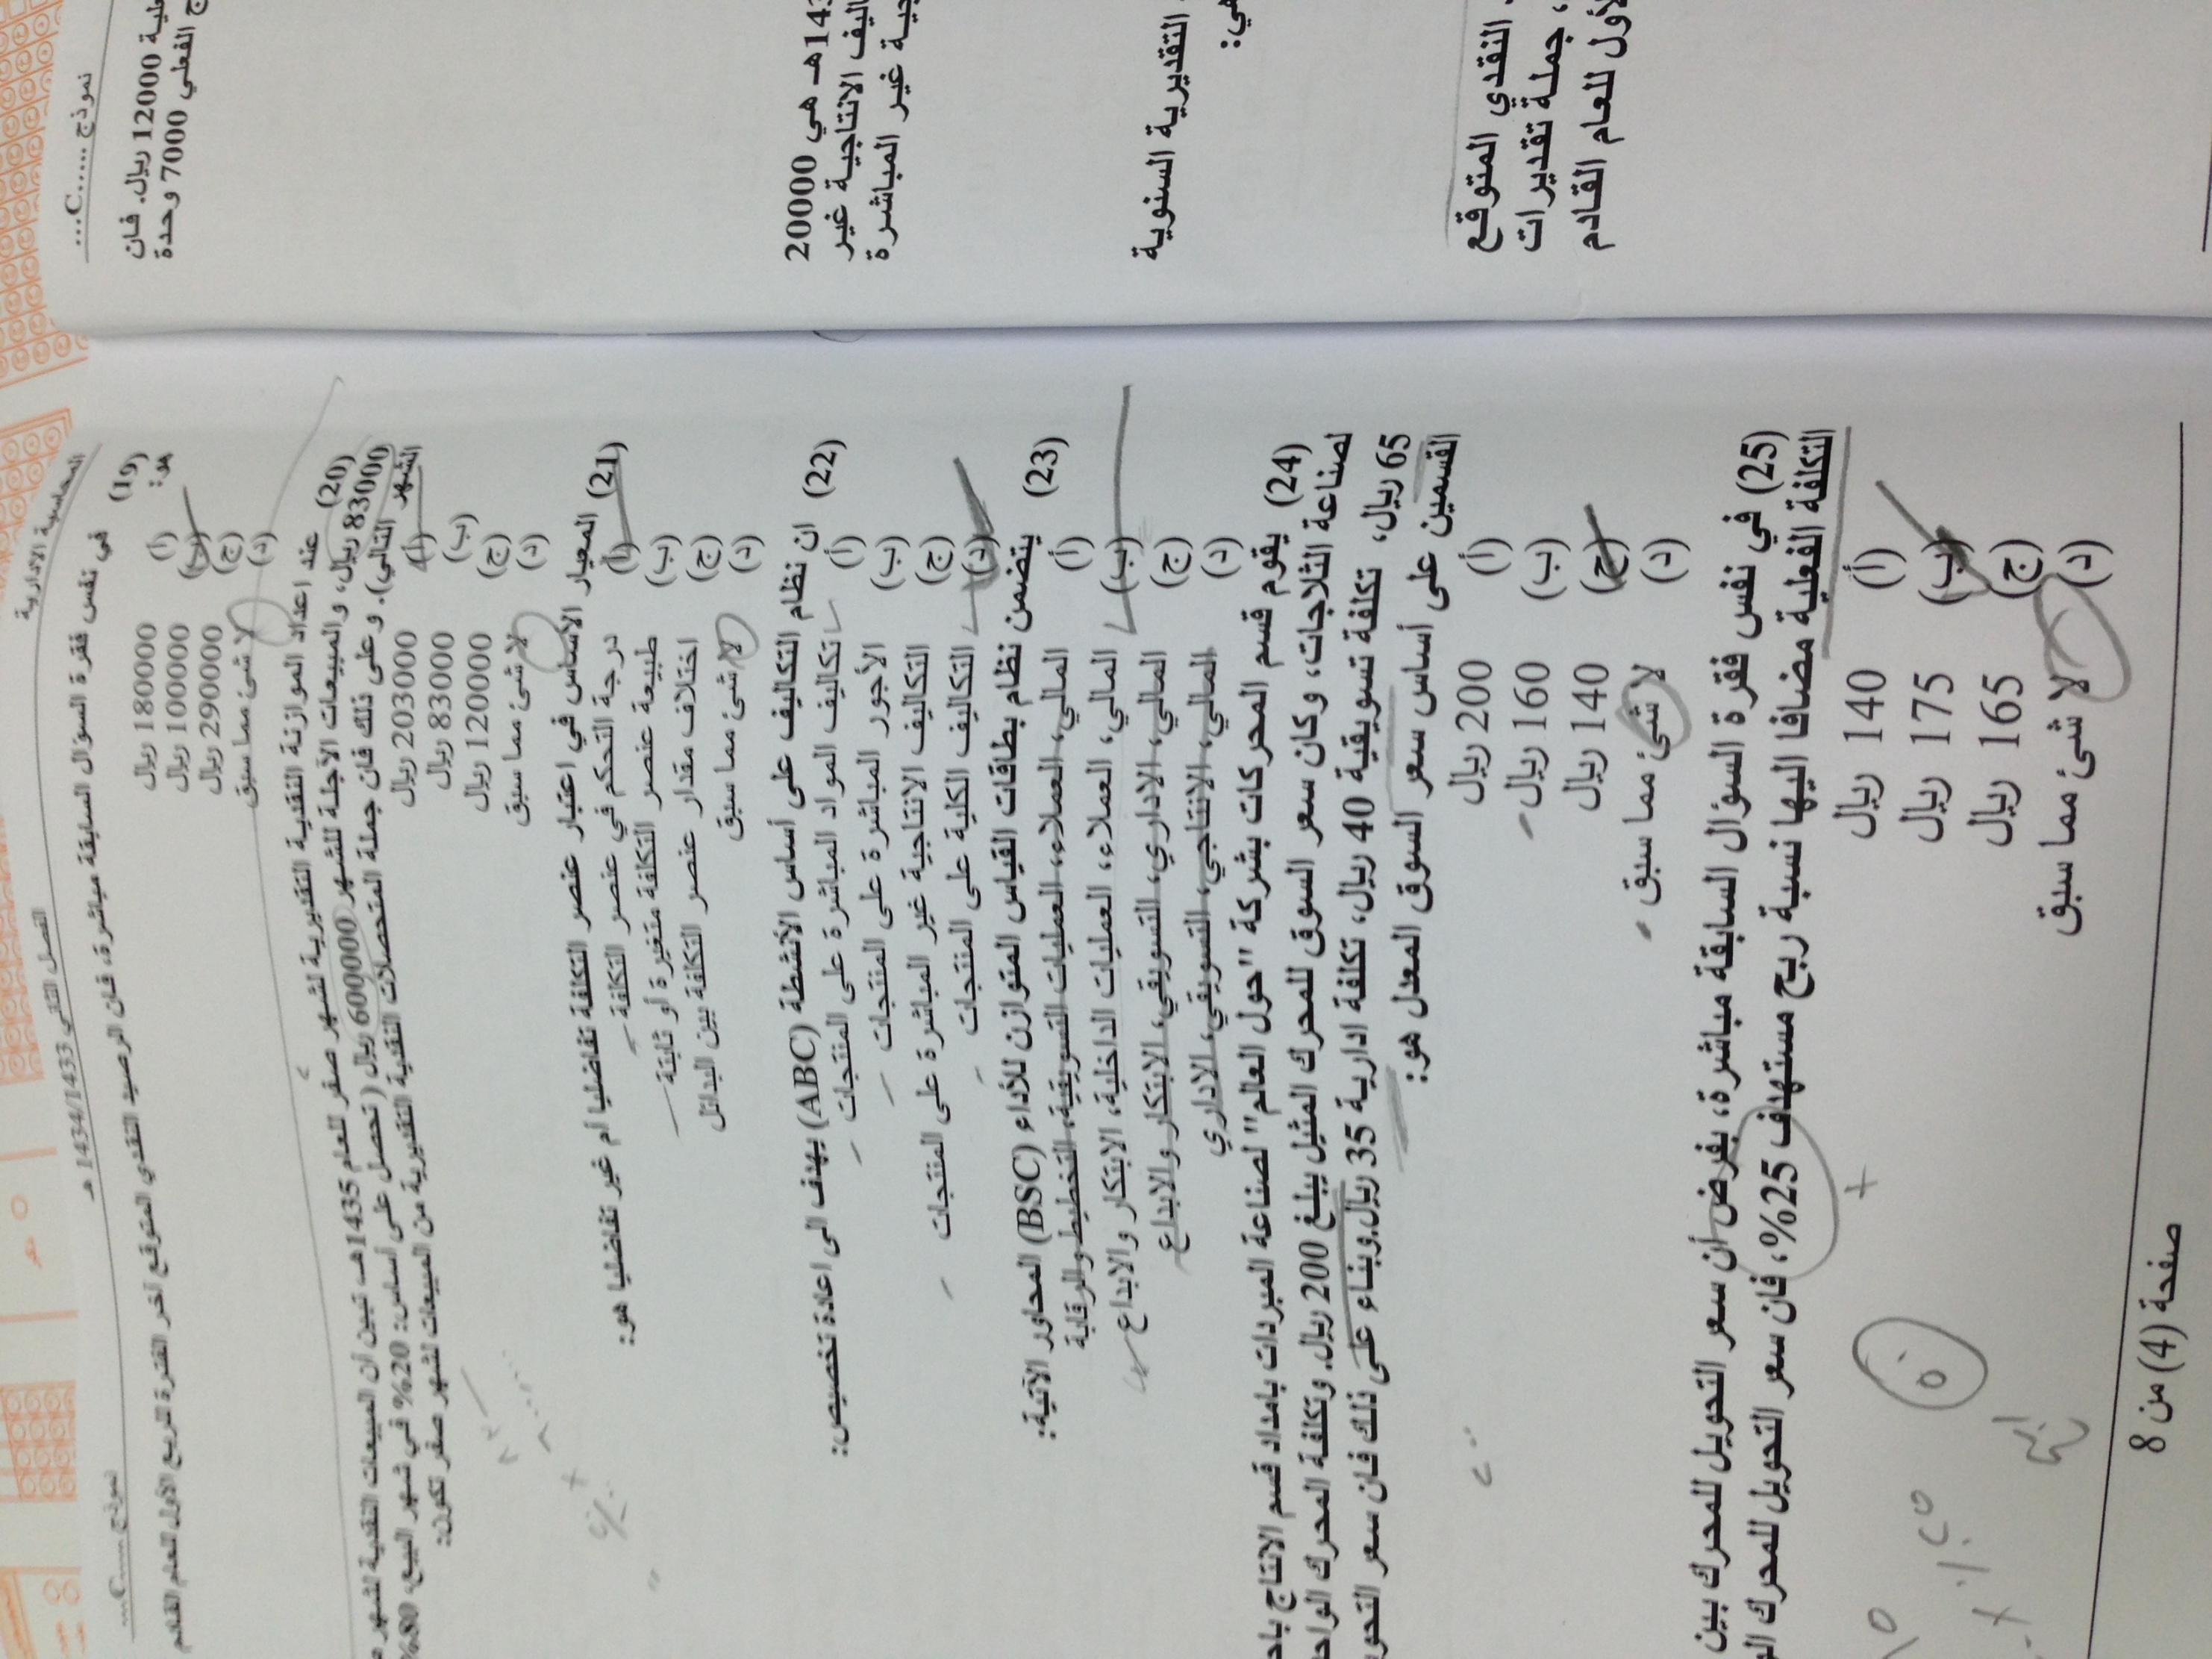 نموذج ......C....
المحاسبة الادارية
الفصل الثاني 1434/1433 هـ
نموذج ......C....
(19) في نفس فقرة السؤال السابقة مباشرة، فان الرصيد النقدي المتوقع آخر الفترة للربع الأول للعام القادم
هو:
(أ) 180000 ريال
(ب) 100000 ريال
(ج) 290000 ريال
(د) لا شئ مما سبق
(20) عند اعداد الموازنة النقدية التقديرية لشهر صفر للعام 1435هـ تبين أن المبيعات النقدية لشهر
83000 ريال، والمبيعات الآجلة للشهر 600000 ريال (تحصل على أساس: 20% في شهر البيع، 80%
الشهر التالي). وعلى ذلك فان جملة المتحصلات النقدية التقديرية من المبيعات لشهر صفر تكون:
(أ) 203000 ريال
(ب) 83000 ريال
(ج) 120000 ريال
(د) لا شئ مما سبق
(21) المعيار الأساس في اعتبار عنصر التكلفة تفاضليا أم غير تفاضليا هو:
(أ) درجة التحكم في عنصر التكلفة
(ب) طبيعة عنصر التكلفة متغيرة أو ثابتة
(ج) اختلاف مقدار عنصر التكلفة بين البدائل
(د) لا شئ مما سبق
(22) ان نظام التكاليف على أساس الأنشطة (ABC) يهدف الى اعادة تخصيص:
(أ) تكاليف المواد المباشرة على المنتجات
(ب) الأجور المباشرة على المنتجات
(ج) التكاليف الانتاجية غير المباشرة على المنتجات
(د) التكاليف الكلية على المنتجات
(23) يتضمن نظام بطاقات القياس المتوازن للأداء (BSC) المحاور الآتية:
(أ) المالي، العملاء، العمليات التسويقية، التخطيط والرقابة
(ب) المالي، العملاء، العمليات الداخلية، الابتكار والابداع
(ج) المالي، الاداري، التسويقي، الابتكار والابداع
(د) المالي، الانتاجي، التسويقي، الاداري
(24) يقوم قسم المحركات بشركة "حول العالم" لصناعة المبردات بامداد قسم الانتاج
لصناعة الثلاجات، وكان سعر السوق للمحرك المثيل يبلغ 200 ريال. وتكلفة المحرك
65 ريال، تكلفة تسويقية 40 ريال، تكلفة ادارية 35 ريال. وبناء على ذلك فان سعر
القسمين على أساس سعر السوق المعدل هو:
(أ) 200 ريال
(ب) 160 ريال
(ج) 140 ريال
(د) لا شئ مما سبق
(25) في نفس فقرة السؤال السابقة مباشرة، بفرض أن سعر التحويل للمحرك بين
التكلفة الفعلية مضافا اليها نسبة ربح مستهدف 25%، فان سعر التحويل للمحرك
(أ) 140 ريال
(ب) 175 ريال
(ج) 165 ريال
(د) لا شئ مما سبق
صفحة (4) من 8
12000 ريال. فان
الفعلي 7000 وحدة
هي 20000
الانتاجية غير
غير المباشرة
التقديرية السنوية
هي:
النقدي المتوقع
، جملة تقديرات
للعام القادم